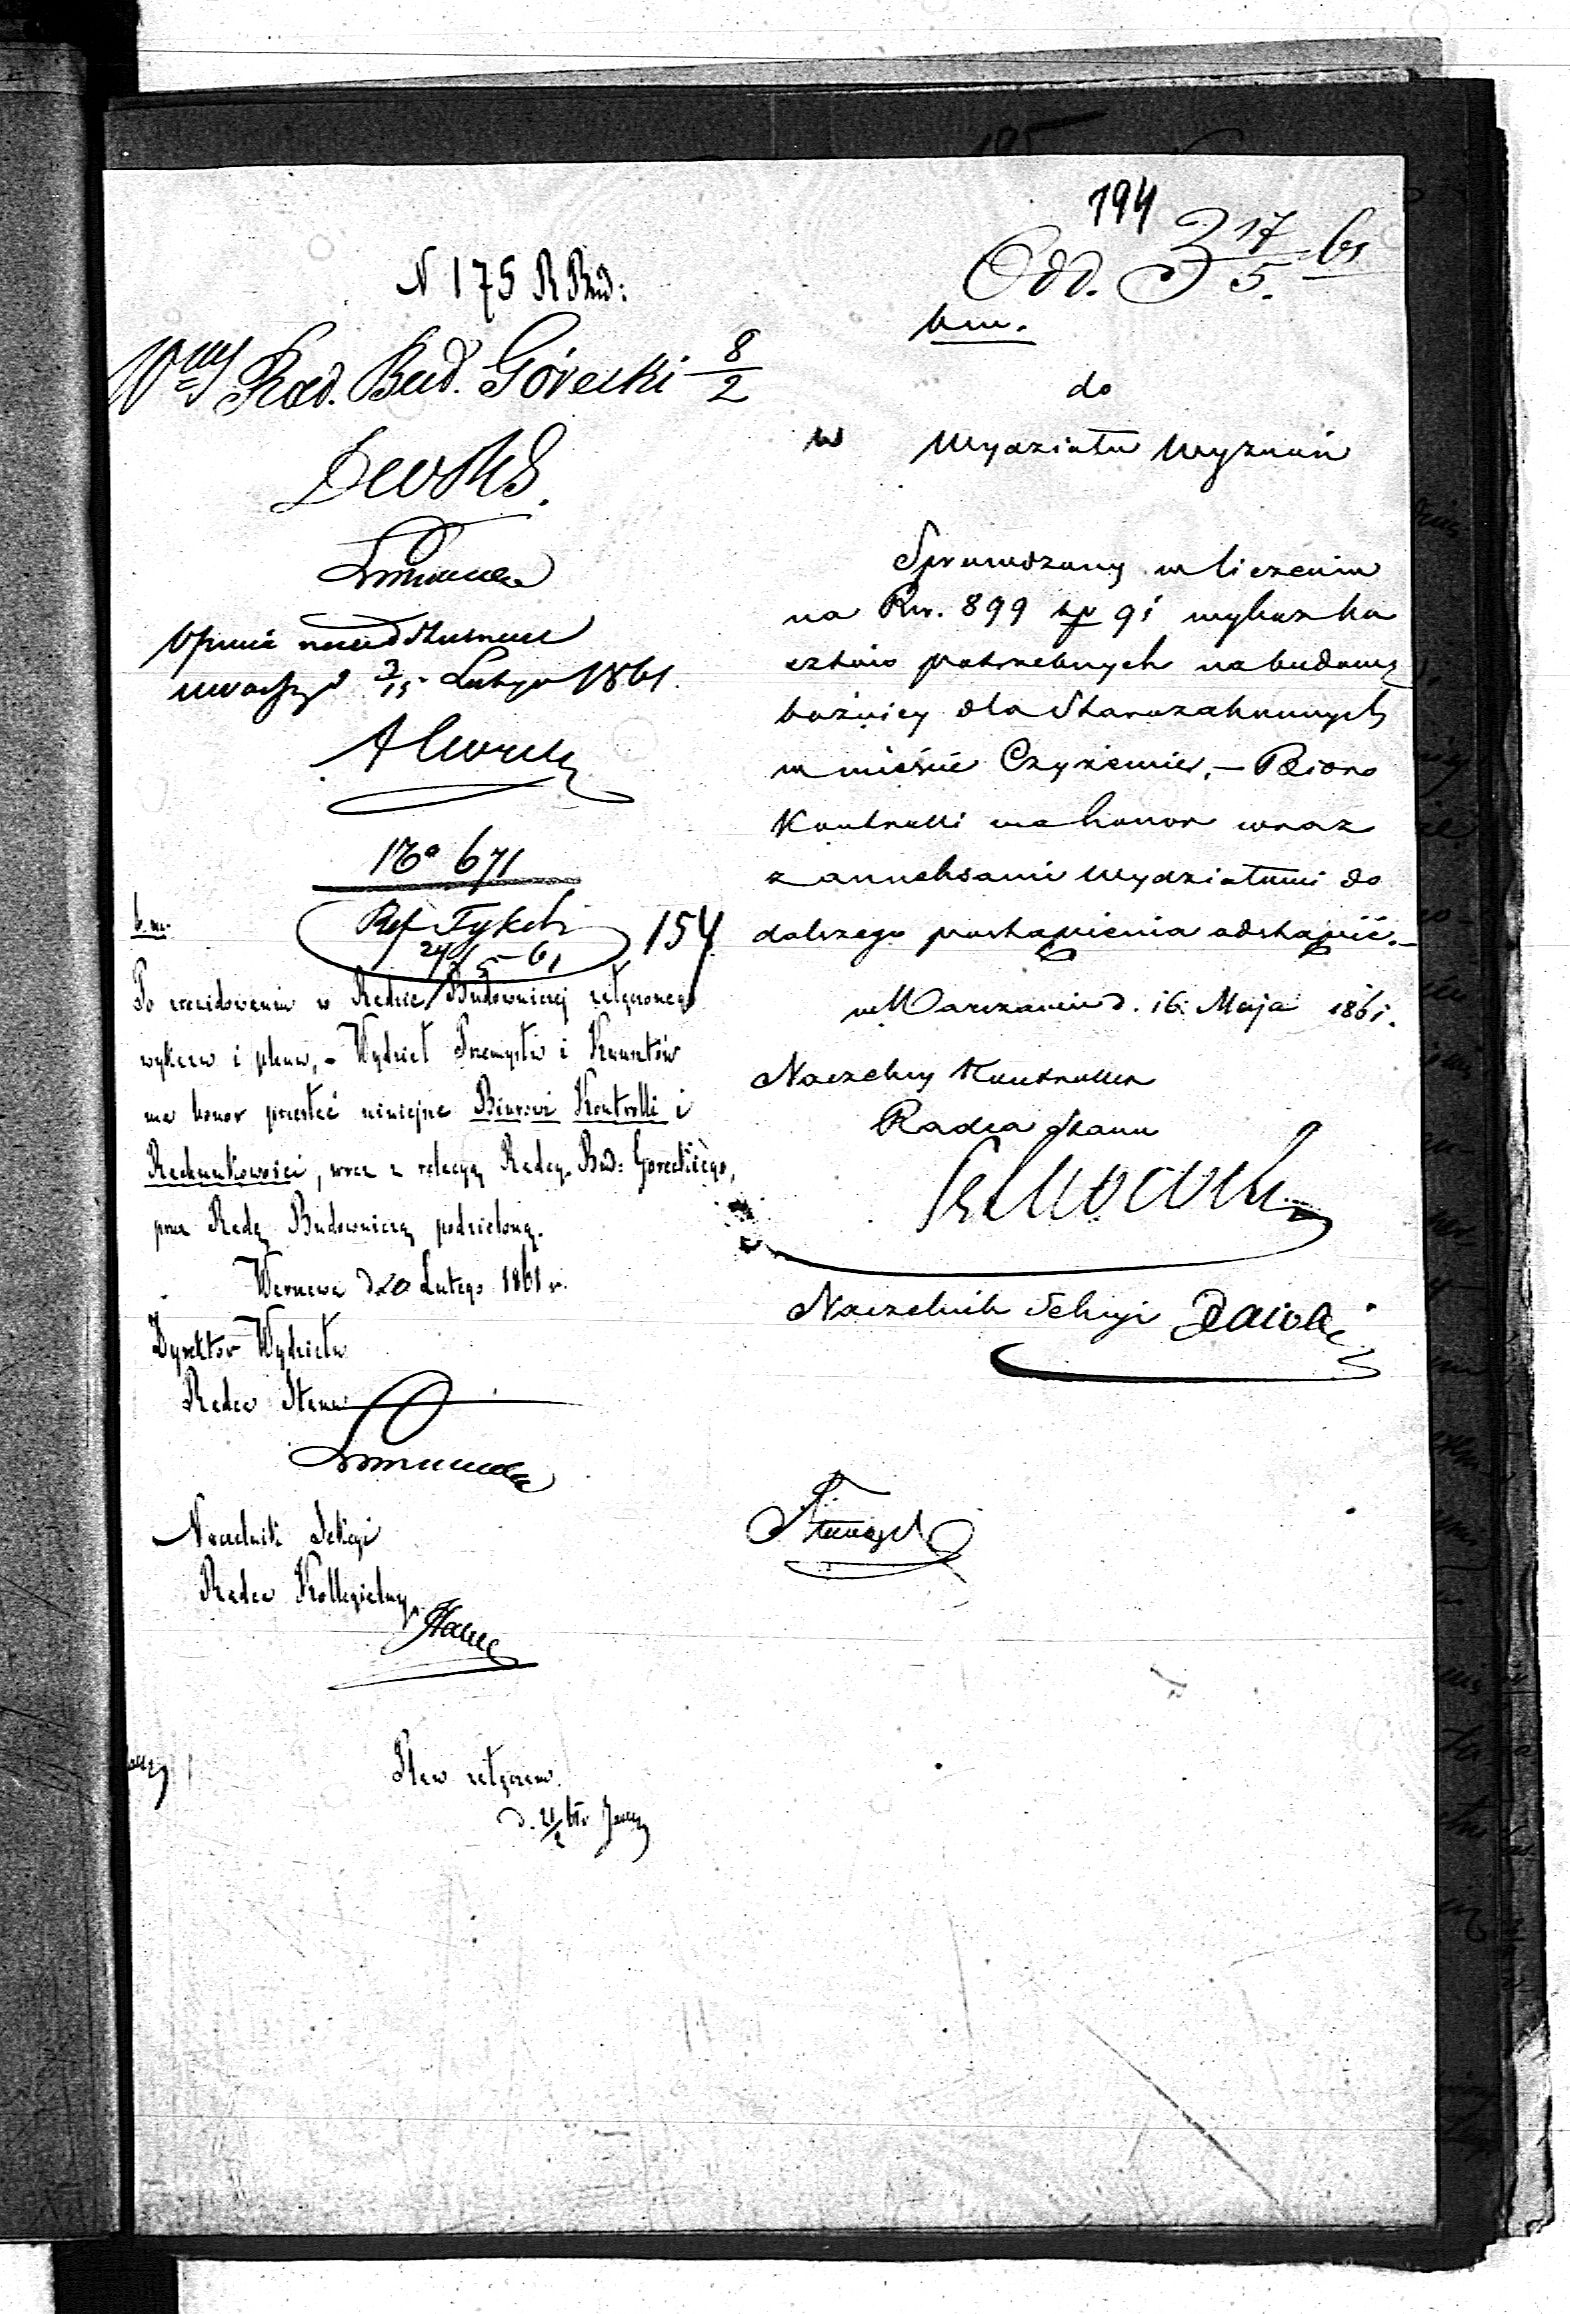 194
Odd. 3 17/5. 61
N 175 R Bud:
Wny Rad. Bud. Górecki 8/2
3/15 Lutego 1861.
No 671
Ref Tykel
24/5 61
154
b. m.
Po zrewidowaniu w Radzie Budowniczej załączonego
wykazu i planu, - Wydział Przemysłu i Kunsztów
ma honor przesłać niniejsze Biurowi Kontrolli i
Rachunkowości, wraz z relacyą Radcy Bud: Goreckiego,
przez Radę Budowniczą podzieloną.
Warszawa d 20 Lutego 1861 r.
Dyrektor Wydziału
Radca Stanu
Naczelnik Sekcyi
Radca Kollegialny
Plan załączam.
d. 21/2 61 r
bm.
do
w Wydziału Wyznań
Sprawdzony w liczeniu
na Rsr. 899 kp 91 wykaz ko
sztów potrzebnych na budowę
bożnicy dla Starozakonnych
w mieście Czyżewie, — Bióro
Kontrolli ma honor wraz
z annexami Wydziałowi do
dalszego postąpienia odstąpić. —
w Warszawie d. 16 Maja 1861.
Naczelny Kontroller
Radca Stanu
Naczelnik Sekcyi